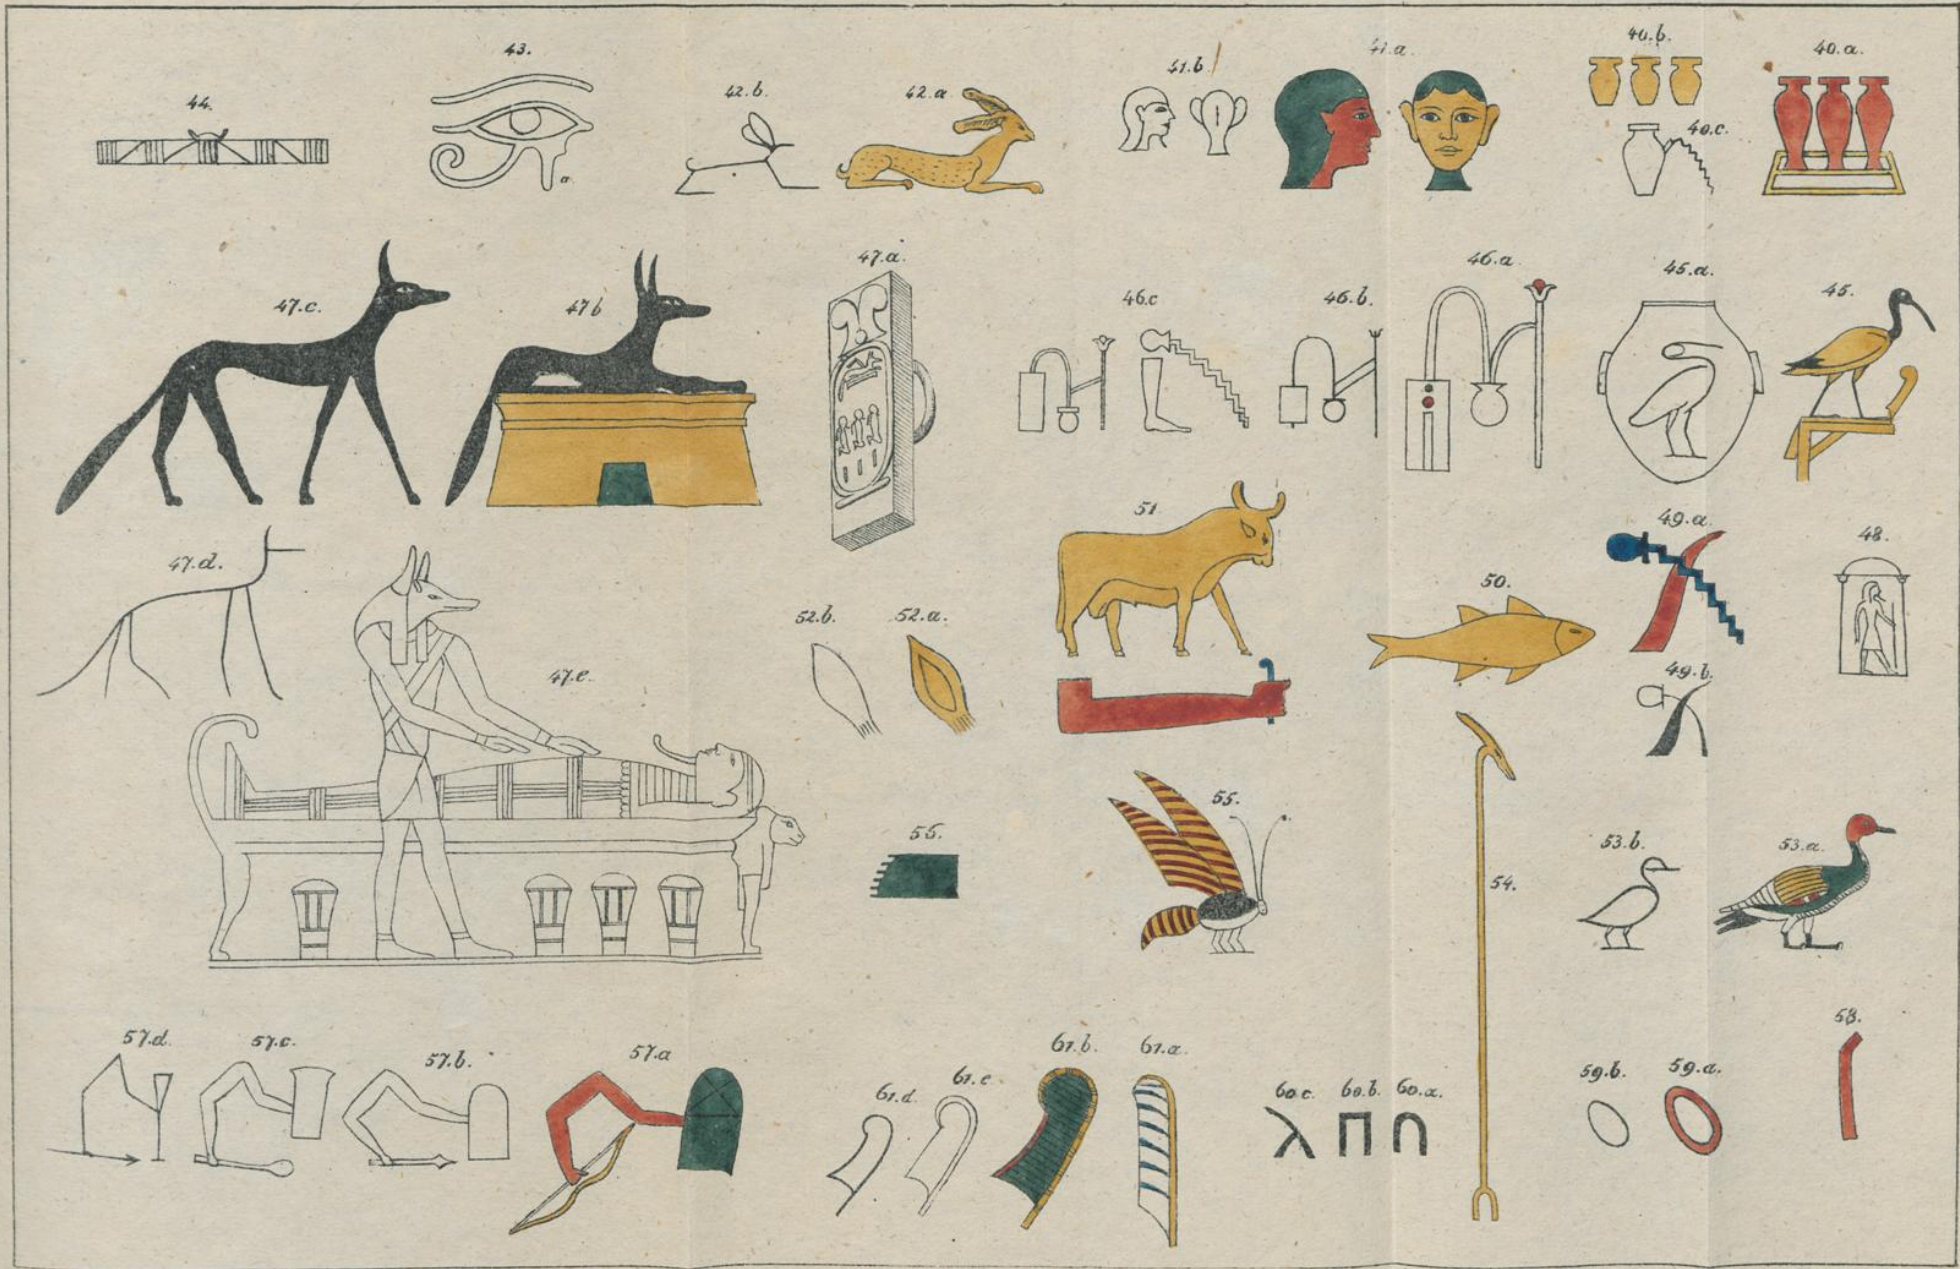 44.
43.
42.b.
42.a
41.b
41.a.
40.b.
40.a.
40.c.
a
47.c.
47.b
47.a.
46.c
46.b.
46.a
45.a.
45.
47.d.
47.e.
52.b.
52.a.
51.
50.
49.a.
48.
49.b.
55.
55.
54.
53.b.
53.a.
57.d.
57.c.
57.b.
57.a
61.d.
61.c.
61.b.
61.a.
60.c.
60.b.
60.a.
59.b.
59.a.
58.